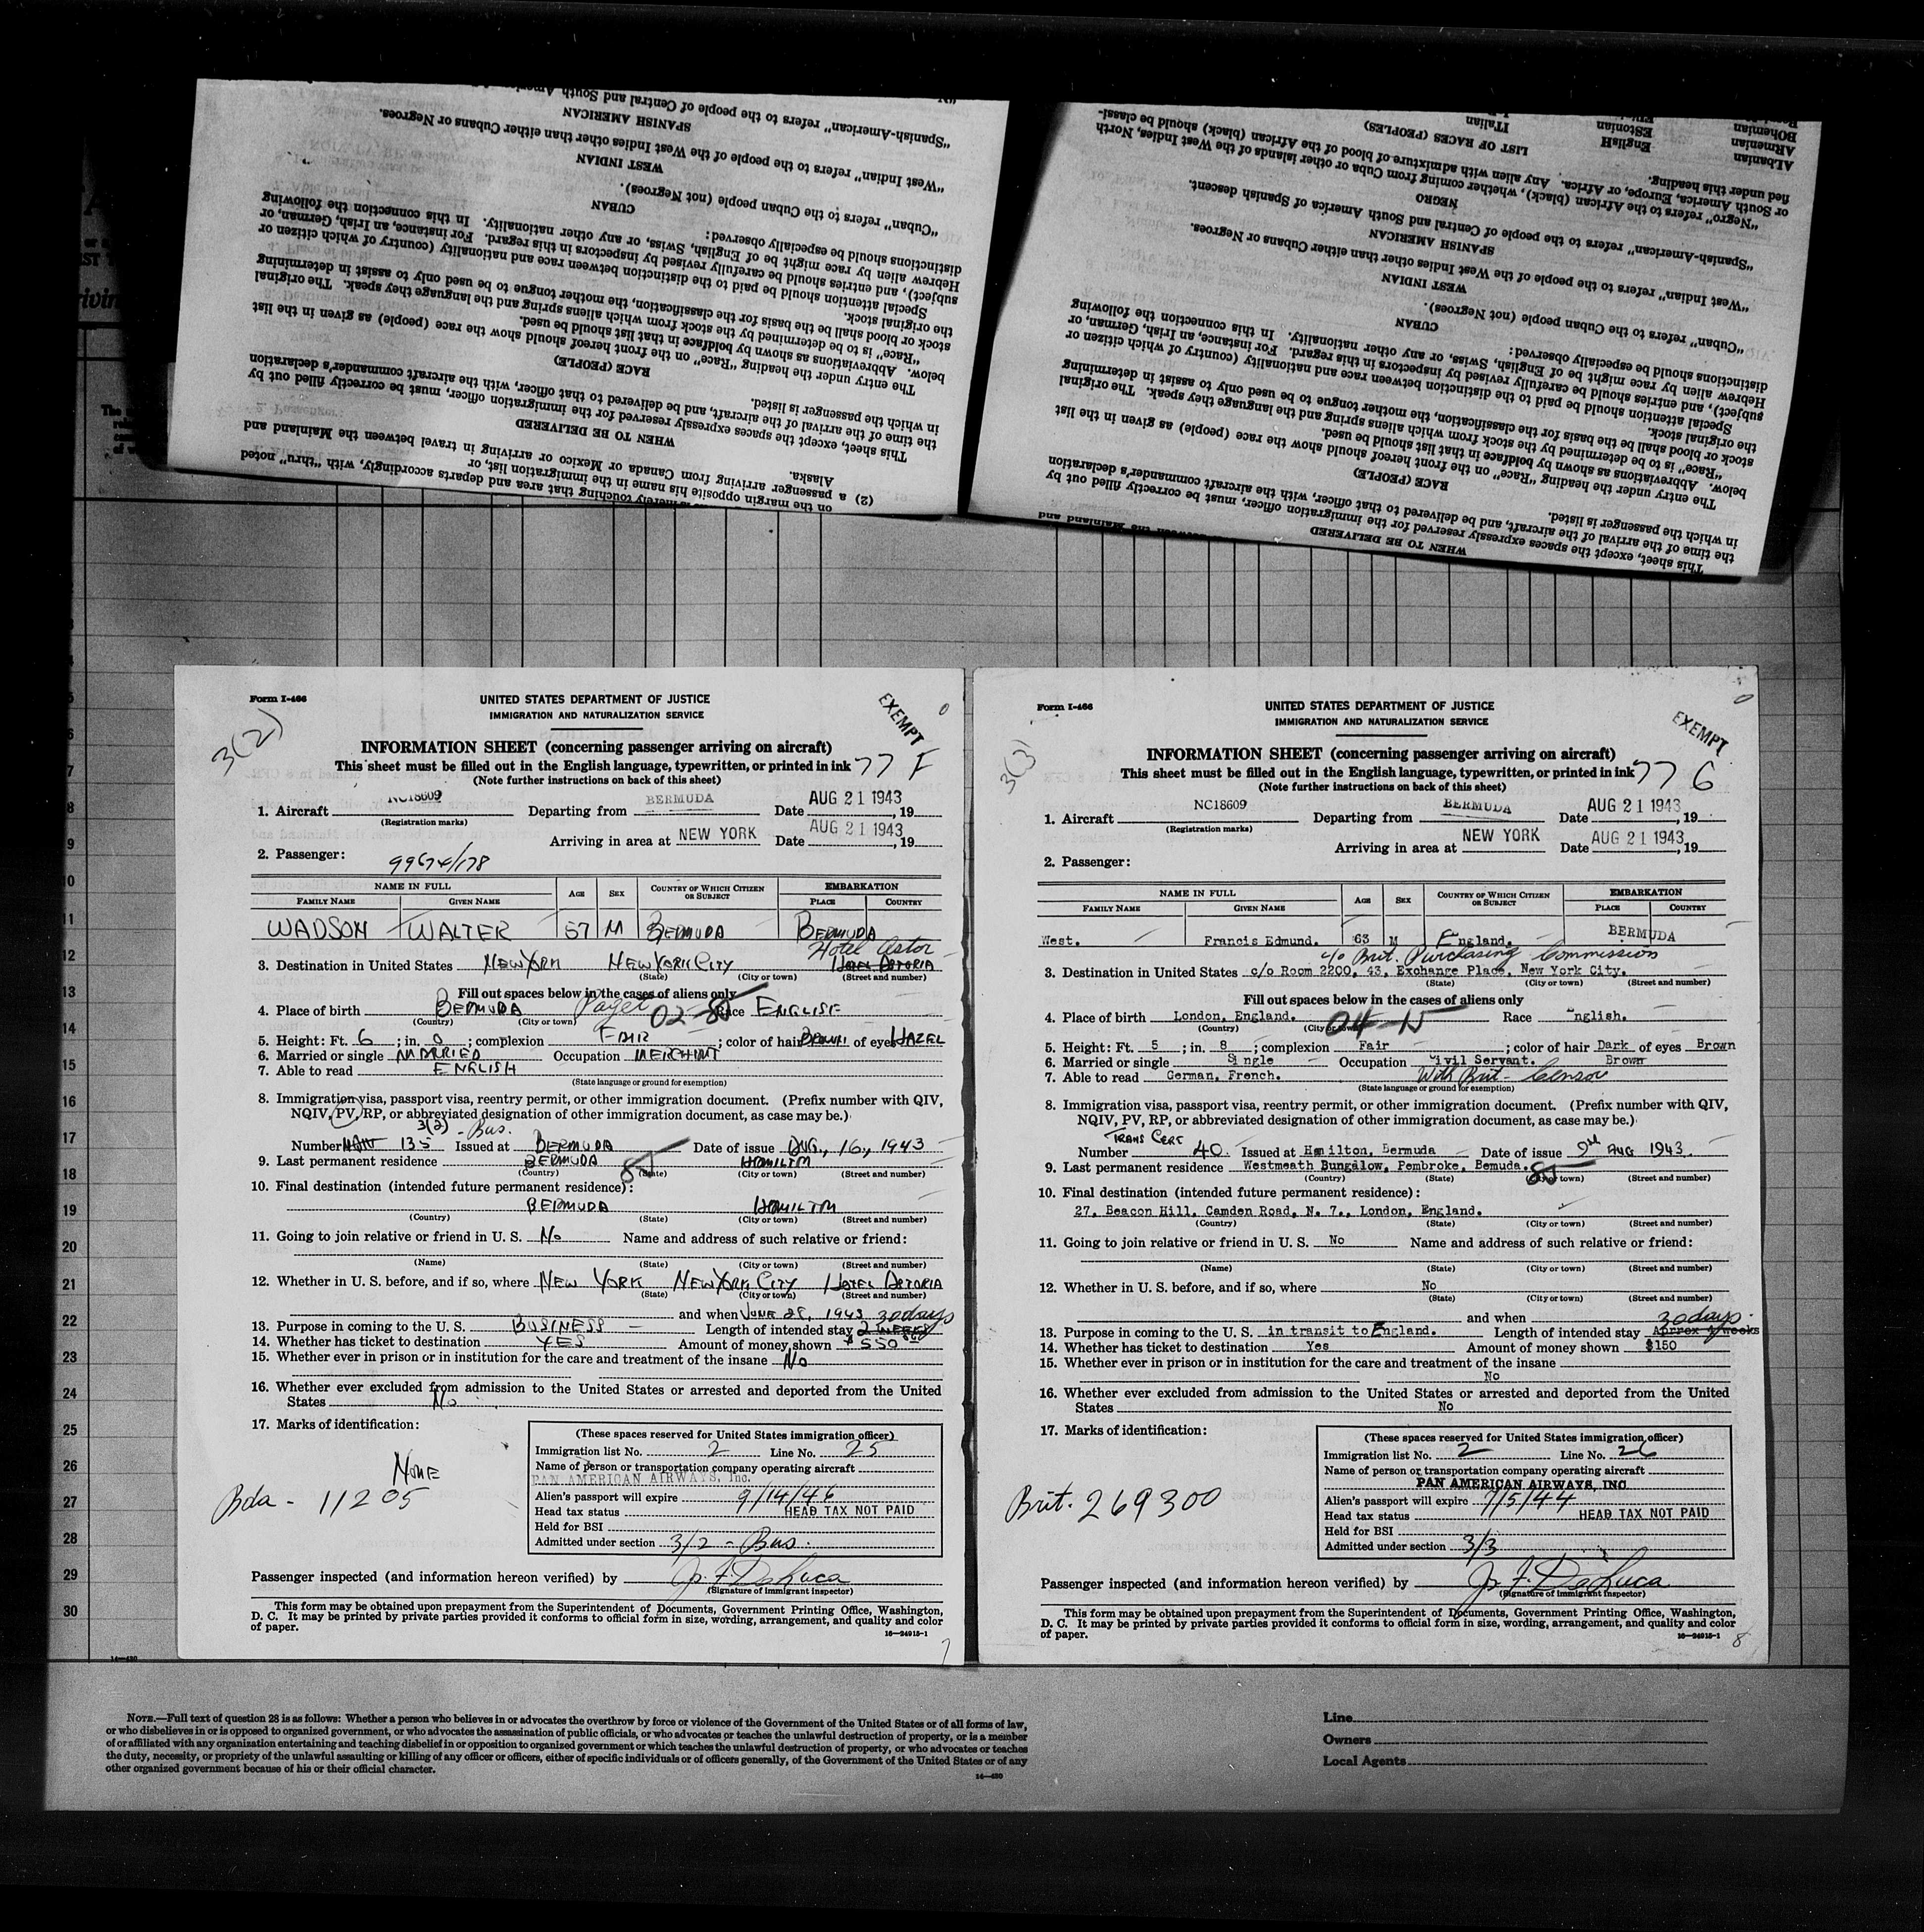 "Spanish-American" refers to the people of Central and South
SPANISH AMERICAN
"West Indian" refers to the people of the West Indies other than either Cubans or Negroes.
WEST INDIAN
"Cuban" refers to the Cuban people (not Negroes).
CUBAN
distinctions should be especially observed:
Hebrew alien by race might be of English, Swiss, or any other nationality. In this connection the following
subject), and entries should be carefully revised by inspectors in this regard. For instance, an Irish, German, or
Special attention should be paid to the distinction between race and nationality (country of which citizen or
the original stock.
stock or blood shall be the basis for the classification, the mother tongue to be used only to assist in determining
"Race" is to be determined by the stock from which aliens spring and the language they speak. The original
below. Abbreviations as shown by boldface in that list should be used.
The entry under the heading "Race" on the front hereof should show the race (people) as given in the list
RACE (PEOPLE)
in which the passenger is listed.
the time of the arrival of the aircraft, and be delivered to that officer, with the aircraft commander's declaration
This sheet, except the spaces expressly reserved for the immigration officer, must be correctly filled out by
WHEN TO BE DELIVERED
Alaska.
(2) a passenger arriving from Canada or Mexico or arriving in travel between the Mainland and
on the margin opposite his name in the immigration list, or
merely touching that area and departs accordingly, with "thru" noted
Albanian
ARmenian
BOhemian
English
EStonian
ITalian
LIST OF RACES (PEOPLES)
fied under this heading.
or South America, Europe, or Africa. Any alien with admixture of blood of the African (black) should be classi-
"Negro" refers to the African (black), whether coming from Cuba or other islands of the West Indies, North
NEGRO
"Spanish-American" refers to the people of Central and South America of Spanish descent.
SPANISH AMERICAN
"West Indian" refers to the people of the West Indies other than either Cubans or Negroes.
WEST INDIAN
"Cuban" refers to the Cuban people (not Negroes).
CUBAN
distinctions should be especially observed:
Hebrew alien by race might be of English, Swiss, or any other nationality. In this connection the following
subject), and entries should be carefully revised by inspectors in this regard. For instance, an Irish, German, or
Special attention should be paid to the distinction between race and nationality (country of which citizen or
the original stock.
stock or blood shall be the basis for the classification, the mother tongue to be used only to assist in determining
"Race" is to be determined by the stock from which aliens spring and the language they speak. The original
below. Abbreviations as shown by boldface in that list should be used.
The entry under the heading "Race" on the front hereof should show the race (people) as given in the list
RACE (PEOPLE)
in which the passenger is listed.
the time of the arrival of the aircraft, and be delivered to that officer, with the aircraft commander's declaration
This sheet, except the spaces expressly reserved for the immigration officer, must be correctly filled out by
WHEN TO BE DELIVERED
Form I-466
3(2)
UNITED STATES DEPARTMENT OF JUSTICE
IMMIGRATION AND NATURALIZATION SERVICE
EXEMPT
0
INFORMATION SHEET (concerning passenger arriving on aircraft)
This sheet must be filled out in the English language, typewritten, or printed in ink 77 F
(Note further instructions on back of this sheet)
1. Aircraft NC18609 Departing from BERMUDA Date AUG 21 1943, 19
(Registration marks)
Arriving in area at NEW YORK Date AUG 21 1943, 19
2. Passenger: 99674/178
NAME IN FULL AGE SEX COUNTRY OF WHICH CITIZEN OR SUBJECT EMBARKATION
FAMILY NAME GIVEN NAME PLACE COUNTRY
WADSON WALTER 57 M BERMUDA BERMUDA
Hotel Astor
3. Destination in United States NEW YORK NEW YORK CITY HOTEL ASTORIA
(State) (City or town) (Street and number)
Fill out spaces below in the cases of aliens only
4. Place of birth BERMUDA Paget 02-85 Race ENGLISH
(Country) (City or town)
5. Height: Ft. 6; in. 0; complexion FAIR; color of hair BROWN of eyes HAZEL
6. Married or single MARRIED Occupation MERCHANT
7. Able to read ENGLISH
(State language or ground for exemption)
8. Immigration visa, passport visa, reentry permit, or other immigration document. (Prefix number with QIV,
NQIV, PV, RP, or abbreviated designation of other immigration document, as case may be.)
3(2) - Bus.
Number NQIV 135 Issued at BERMUDA Date of issue AUG., 16, 1943
9. Last permanent residence BERMUDA 85 HAMILTON
(Country) (State) (City or town) (Street and number)
10. Final destination (intended future permanent residence):
BERMUDA HAMILTON
(Country) (State) (City or town) (Street and number)
11. Going to join relative or friend in U. S. No Name and address of such relative or friend:
(Name) (State) (City or town) (Street and number)
12. Whether in U. S. before, and if so, where NEW YORK NEW YORK CITY HOTEL ASTORIA
(State) (City or town) (Street and number)
and when JUNE 28, 1943 30 days
13. Purpose in coming to the U. S. BUSINESS Length of intended stay 2 WEEKS
14. Whether has ticket to destination YES Amount of money shown $550 00
15. Whether ever in prison or in institution for the care and treatment of the insane No
16. Whether ever excluded from admission to the United States or arrested and deported from the United
States No
17. Marks of identification:
NONE
Bda - 11205
(These spaces reserved for United States immigration officer)
Immigration list No. 2 Line No. 25
Name of person or transportation company operating aircraft
PAN AMERICAN AIRWAYS, Inc.
Alien's passport will expire 9/14/46
Head tax status HEAD TAX NOT PAID
Held for BSI
Admitted under section 3/2 - Bus.
Passenger inspected (and information hereon verified) by Jr. F. DeLuca
(Signature of immigrant inspector)
This form may be obtained upon prepayment from the Superintendent of Documents, Government Printing Office, Washington,
D. C. It may be printed by private parties provided it conforms to official form in size, wording, arrangement, and quality and color
of paper.
16—24915-1
7
Form I-466
3(3)
UNITED STATES DEPARTMENT OF JUSTICE
IMMIGRATION AND NATURALIZATION SERVICE
EXEMPT
0
INFORMATION SHEET (concerning passenger arriving on aircraft)
This sheet must be filled out in the English language, typewritten, or printed in ink 77 G
(Note further instructions on back of this sheet)
1. Aircraft NC18609 Departing from BERMUDA Date AUG 21 1943, 19
(Registration marks)
Arriving in area at NEW YORK Date AUG 21 1943, 19
2. Passenger:
NAME IN FULL AGE SEX COUNTRY OF WHICH CITIZEN OR SUBJECT EMBARKATION
FAMILY NAME GIVEN NAME PLACE COUNTRY
West. Francis Edmund. 63 M England. BERMUDA
c/o Brit. Purchasing Commission
3. Destination in United States c/o Room 2200, 43, Exchange Place, New York City.
(State) (City or town) (Street and number)
Fill out spaces below in the cases of aliens only
4. Place of birth London, England. 04-15 Race English.
(Country) (City or town)
5. Height: Ft. 5; in. 8; complexion Fair; color of hair Dark of eyes Brown
6. Married or single Single Occupation Civil Servant. Brown
7. Able to read German, French. With Brit- Censor
(State language or ground for exemption)
8. Immigration visa, passport visa, reentry permit, or other immigration document. (Prefix number with QIV,
NQIV, PV, RP, or abbreviated designation of other immigration document, as case may be.)
TRANS CERT
Number 40. Issued at Hamilton, Bermuda Date of issue 9nd AUG 1943.
9. Last permanent residence Westmeath Bungalow, Pembroke, Bemuda. 85
(Country) (State) (City or town) (Street and number)
10. Final destination (intended future permanent residence):
27, Beacon Hill, Camden Road, N. 7., London, England.
(Country) (State) (City or town) (Street and number)
11. Going to join relative or friend in U. S. No Name and address of such relative or friend:
(Name) (State) (City or town) (Street and number)
12. Whether in U. S. before, and if so, where No
(State) (City or town) (Street and number)
and when 30 days.
13. Purpose in coming to the U. S. in transit to England. Length of intended stay Approx weeks
14. Whether has ticket to destination Yes Amount of money shown $150
15. Whether ever in prison or in institution for the care and treatment of the insane
No
16. Whether ever excluded from admission to the United States or arrested and deported from the United
States No
17. Marks of identification:
Brit. 269300
(These spaces reserved for United States immigration officer)
Immigration list No. 2 Line No. 26
Name of person or transportation company operating aircraft
PAN AMERICAN AIRWAYS, INC
Alien's passport will expire 7/5/44
Head tax status HEAD TAX NOT PAID
Held for BSI
Admitted under section 3/3
Passenger inspected (and information hereon verified) by Jr. F. DeLuca
(Signature of immigrant inspector)
This form may be obtained upon prepayment from the Superintendent of Documents, Government Printing Office, Washington,
D. C. It may be printed by private parties provided it conforms to official form in size, wording, arrangement, and quality and color
of paper.
16—24915-1
8
6
7
8
9
10
11
12
13
14
15
16
17
18
19
20
21
22
23
24
25
26
27
28
29
30
14—430
NOTE.—Full text of question 28 is as follows: Whether a person who believes in or advocates the overthrow by force or violence of the Government of the United States or of all forms of law,
or who disbelieves in or is opposed to organized government, or who advocates the assassination of public officials, or who advocates or teaches the unlawful destruction of property, or is a member
of or affiliated with any organization entertaining and teaching disbelief in or opposition to organized government or which teaches the unlawful destruction of property, or who advocates or teaches
the duty, necessity, or propriety of the unlawful assaulting or killing of any officer or officers, either of specific individuals or of officers generally, of the Government of the United States or of any
other organized government because of his or their official character.
14—430
Line
Owners
Local Agents